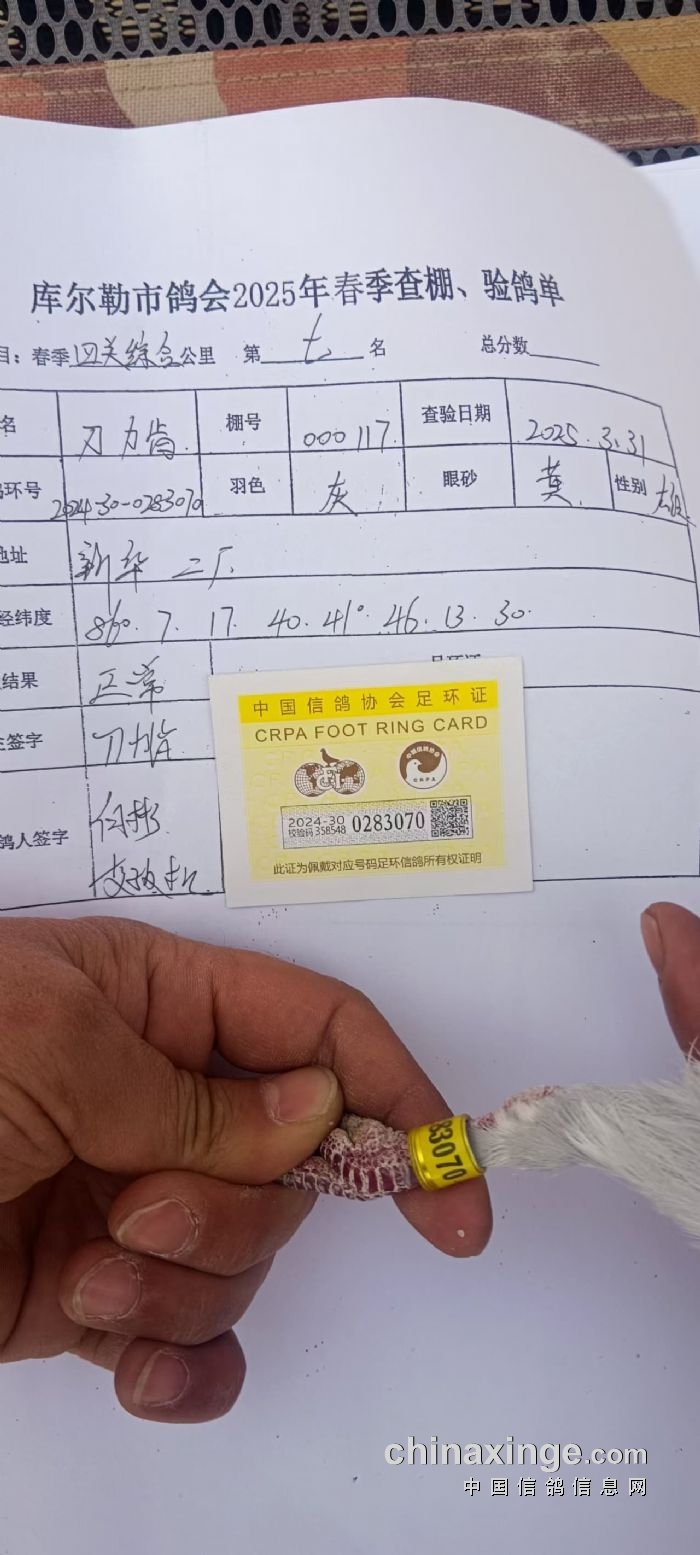 库尔勒市鸽会2025年春季查棚、验鸽单
目：春季四关综合公里 第七名 总分数
名 刀力肯 棚号 000117 查验日期 2025.3.31
环号 2024-30-0283070 羽色 灰 眼砂 黄 性别 雄
地址 新华二厂
经纬度 860.7.17. 40.41°.46.13.30.
结果 正常
签字 刀力肯
足环证
中国信鸽协会足环证
CRPA FOOT RING CARD
2024-30
校验码 358548 0283070
此证为佩戴对应号码足环信鸽所有权证明
鸽人签字
83070
chinaxinge.com
中国信鸽信息网